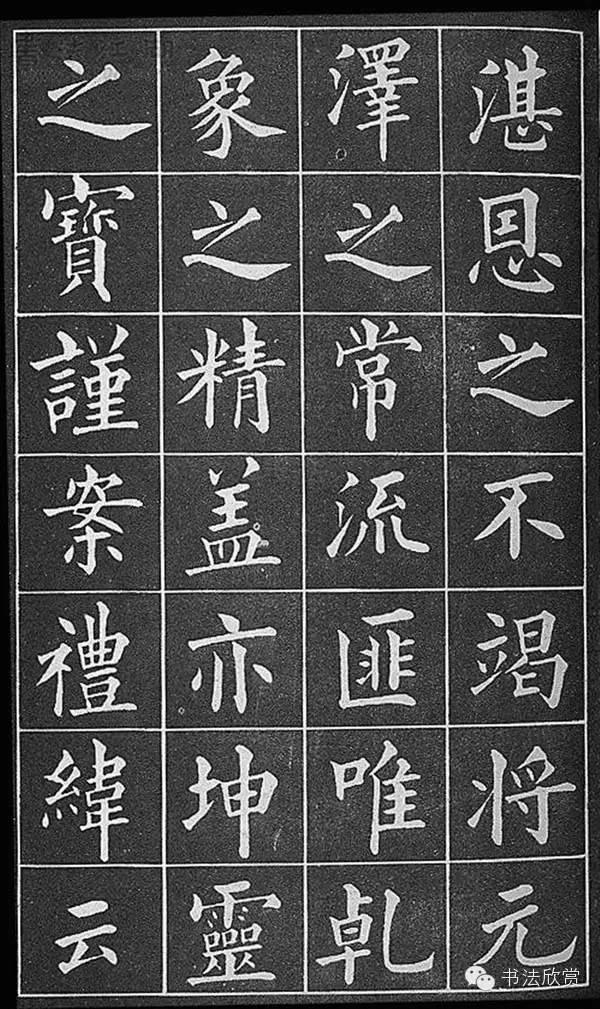 湛恩之不竭将元
澤之常流匪唯乹
象之精盖亦坤靈
之寶謹案禮緯云
书法欣赏